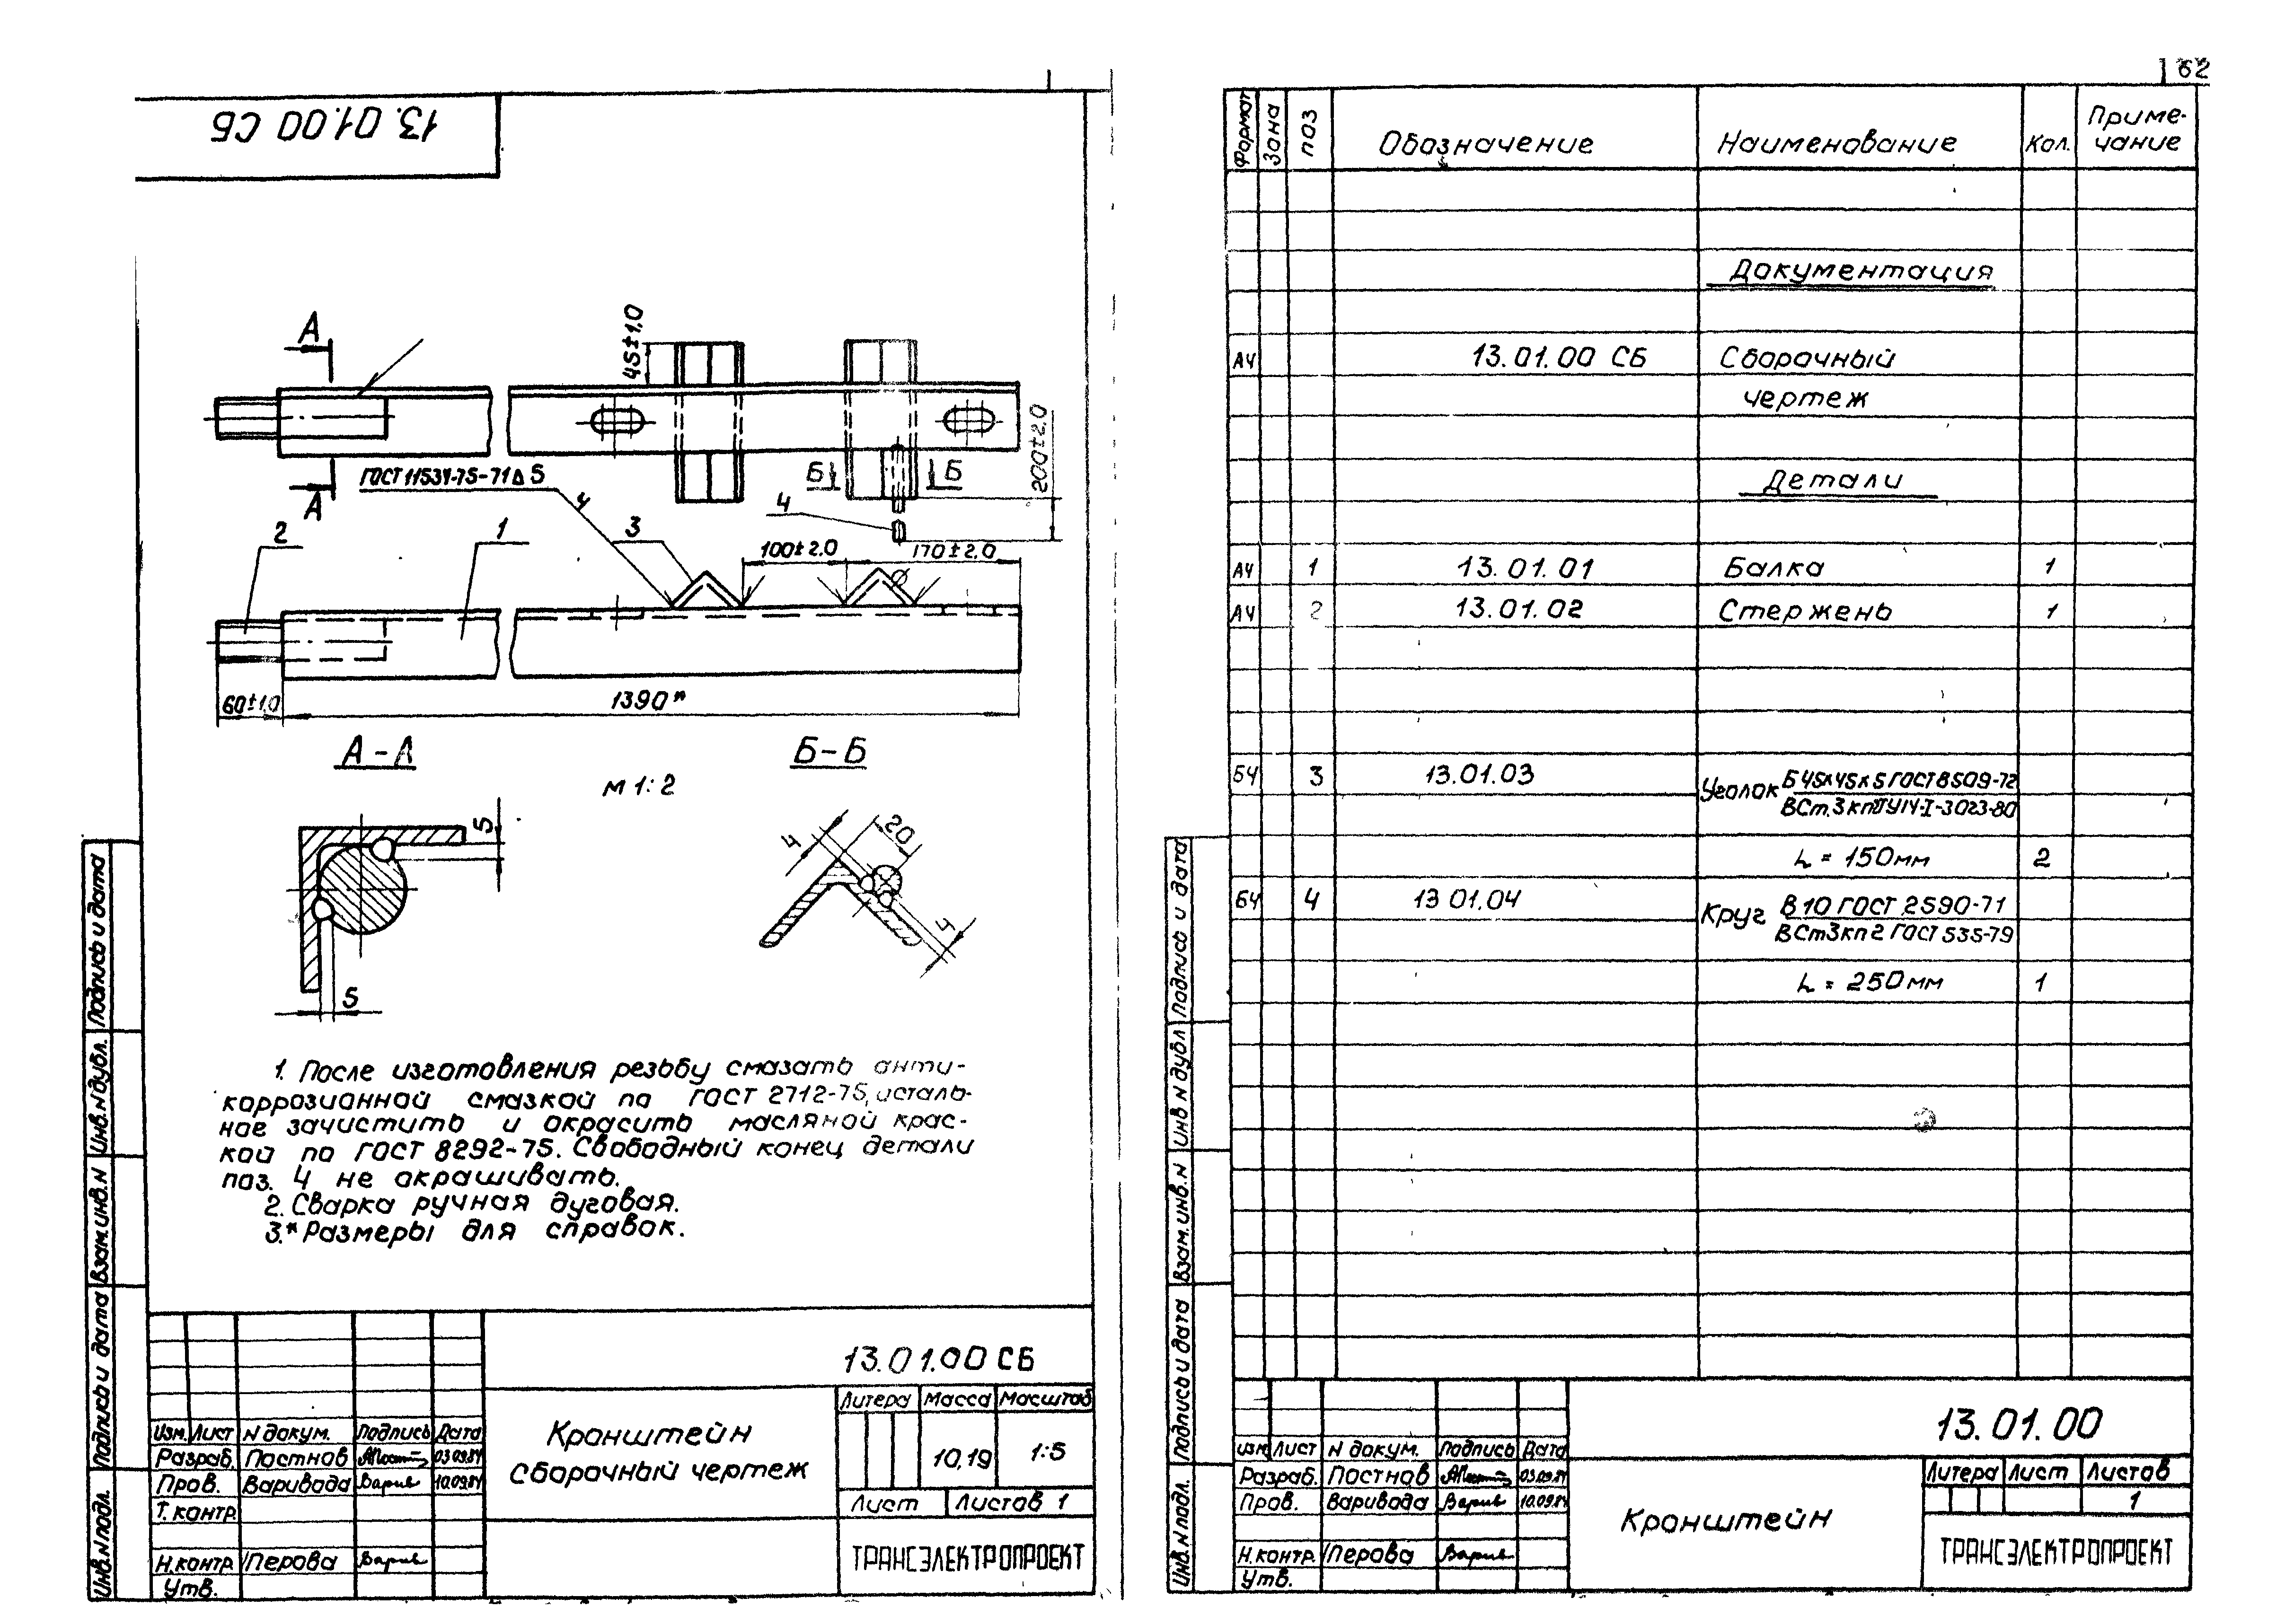 13.01.00 СБ
А
45±1,0
200±2,0
ГОСТ 11534-75-71 Δ 5
А
Б
Б
4
4
2
1
3
100±2,0
170±2,0
60±1,0
1390*
А-А
Б-Б
М 1:2
5
5
4
20
4
1. После изготовления резьбу смазать анти-
коррозионной смазкой по ГОСТ 2712-75, осталь-
ное зачистить и окрасить масляной крас-
кой по ГОСТ 8292-75. Свободный конец детали
поз. 4 не окрашивать.
2. Сварка ручная дуговая.
3.* Размеры для справок.
Подпись и дата
Инв.N дубл.
Взам.инв.N
Подпись и дата
Инв.N подл.
13.01.00 СБ
Изм. Лист N докум. Подпись Дата
Разраб. Постнов 03.09.84
Пров. Варивода 10.09.84
Т.контр.
Н.контр. Перова
Утв.
Кронштейн
сборочный чертеж
Литера Масса Масштаб
10,19 1:5
Лист Листов 1
ТРАНСЭЛЕКТРОПРОЕКТ
62
Формат Зона Поз Обозначение Наименование Кол. Приме-
чание
Документация
А4 13.01.00 СБ Сборочный
чертеж
Детали
А4 1 13.01.01 Балка 1
А4 2 13.01.02 Стержень 1
БЧ 3 13.01.03 Уголок Б 45х45х5 ГОСТ 8509-72
ВСт.3кпII ТУ14-I-3023-80
L = 150мм 2
БЧ 4 13 01.04 Круг В 10 ГОСТ 2590-71
ВСт3кп2 ГОСТ 535-79
L = 250мм 1
Подпись и дата
Инв N дубл
Взам.инв.N
Подпись и дата
Инв.N подл.
13.01.00
Изм Лист N докум. Подпись Дата
Разраб. Постнов 03.09.84
Пров. Варивода 10.09.84
Н.контр. Перова
Утв.
Кронштейн
Литера Лист Листов
1
ТРАНСЭЛЕКТРОПРОЕКТ